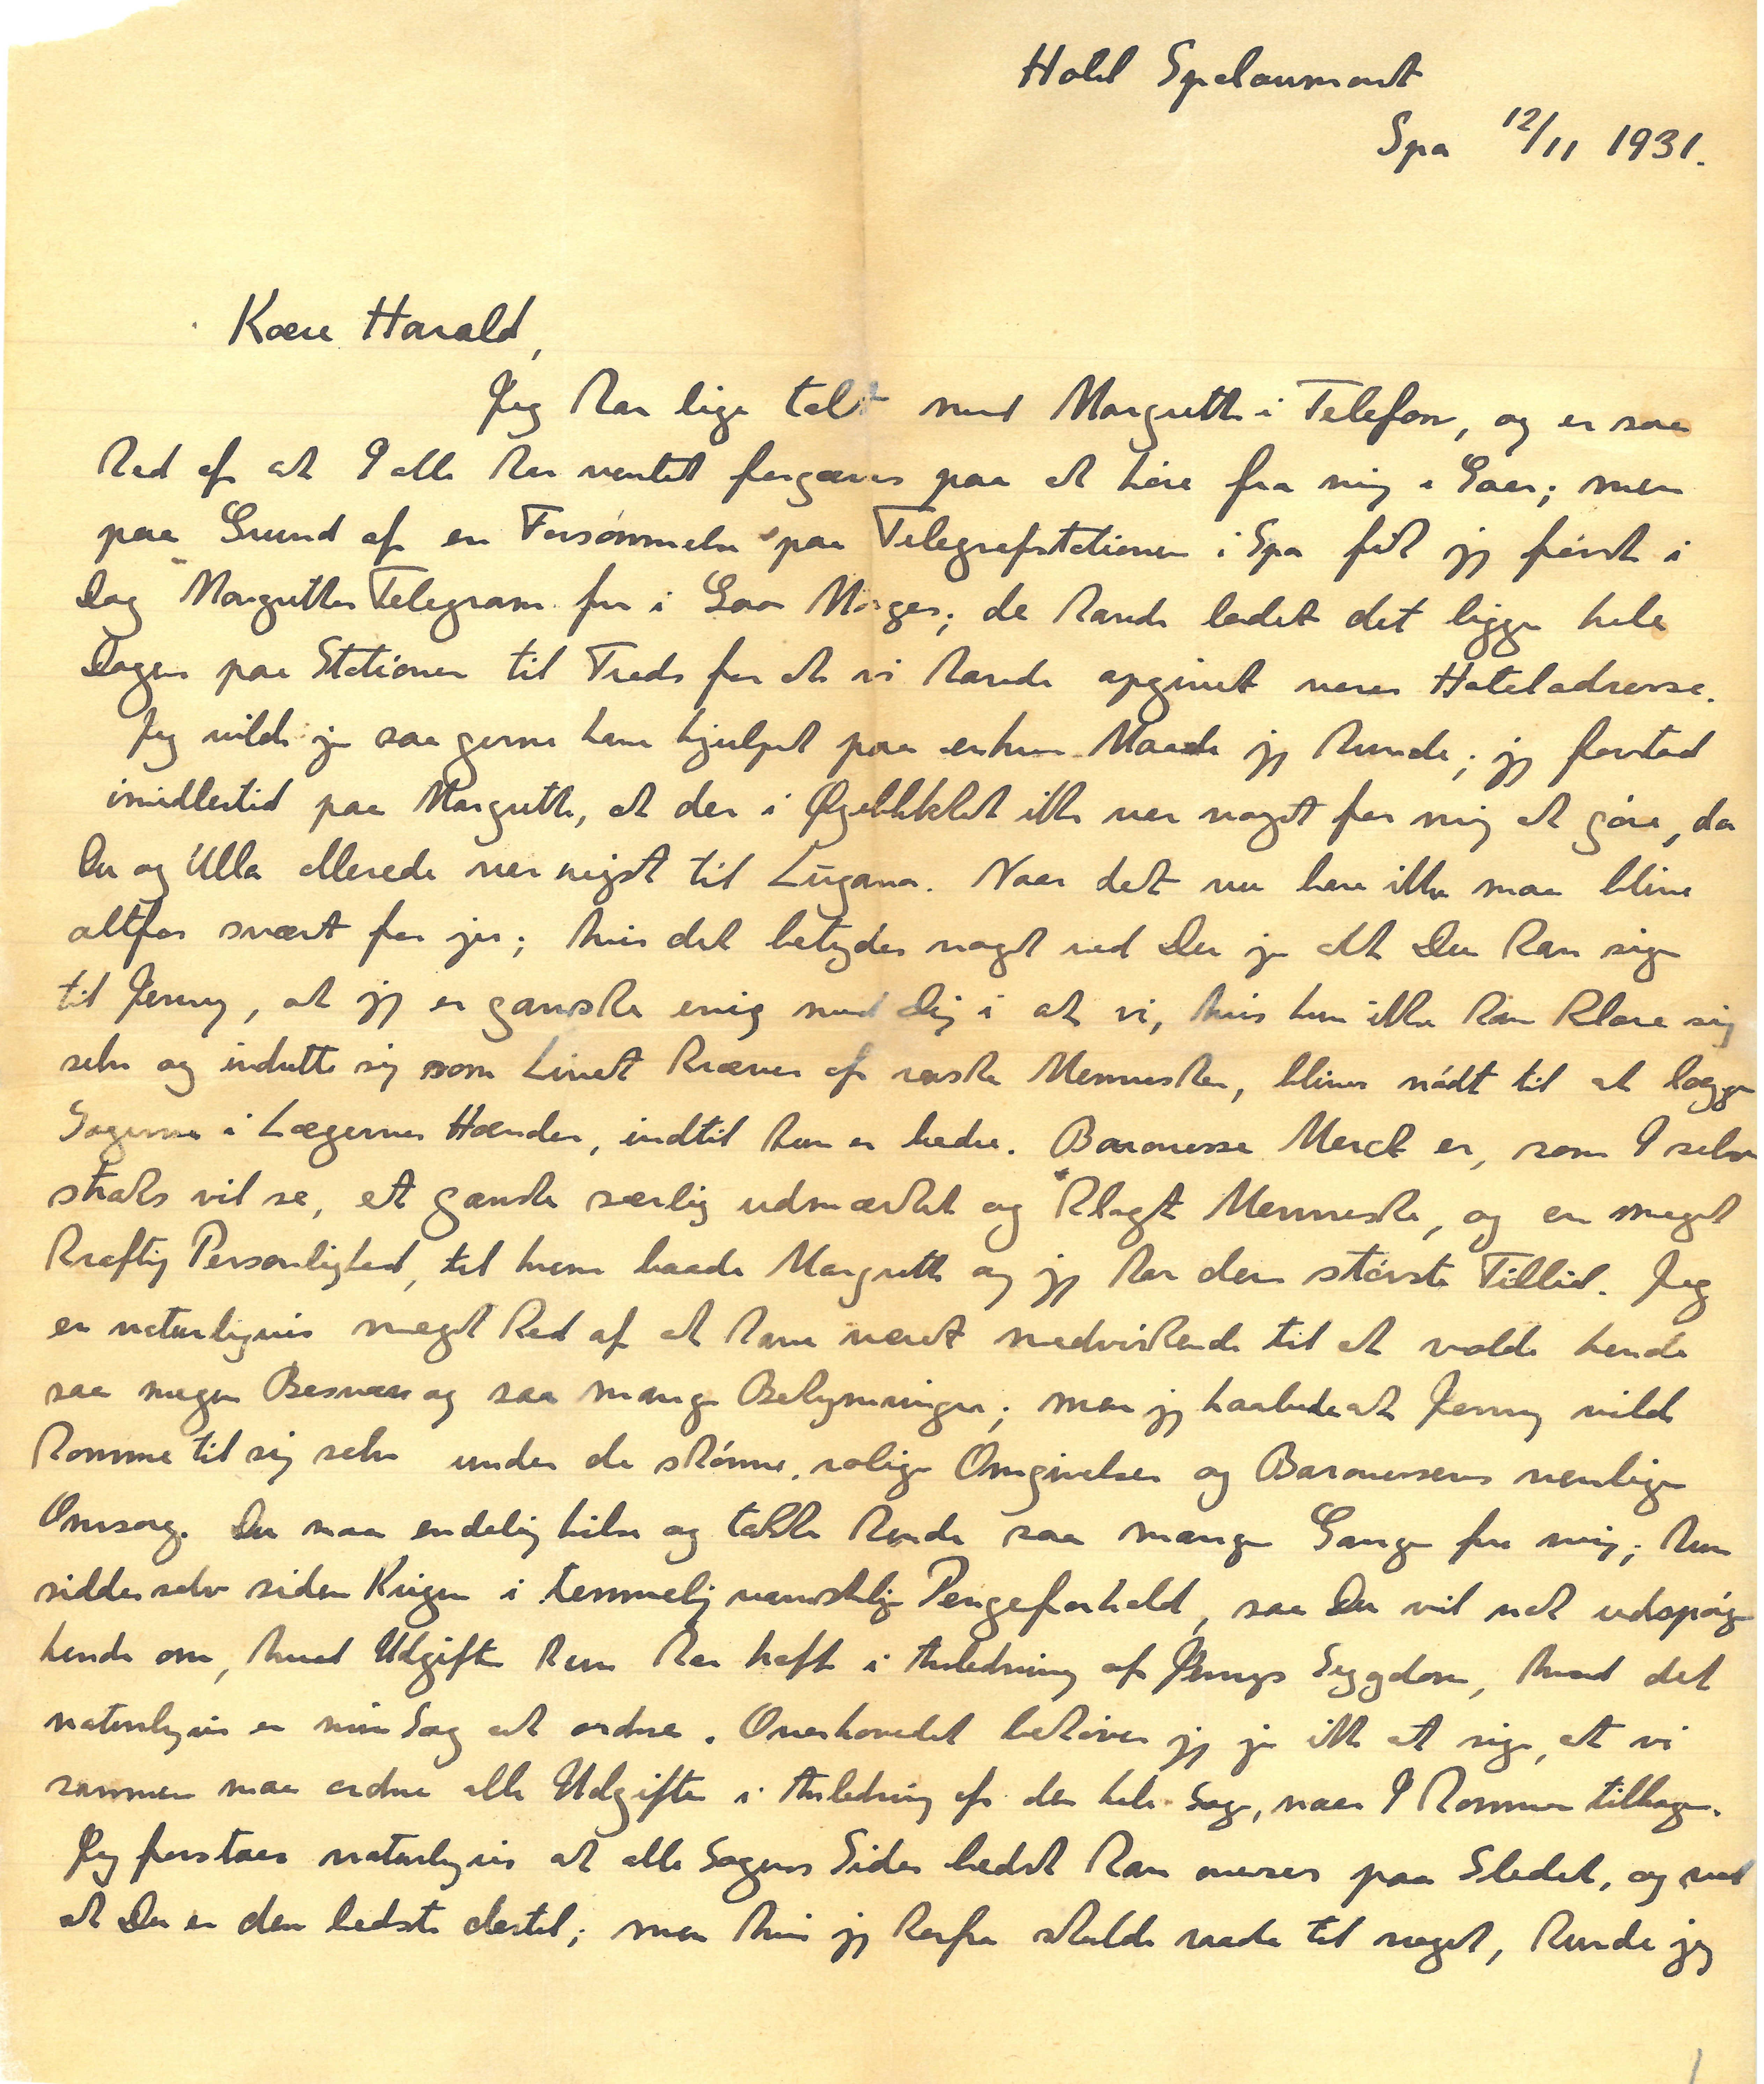 Hotel Speloumont
Spa 12/11 1931.
Kære Harald,
Jeg har lige talt med Margrethe i Telefon, og er saa
ked af at I alle har ventet forgæves paa at høre fra mig i Gaar; men
paa Grund af en Forsømmelse paa Telegrafstationen i Spa fik jeg først i
Dag Margrethes Telegram fra i Gaar Morges; de havde ladet det ligge hele
Dagen paa Stationen til Trods for at vi havde opgivet vores Hoteladresse.
Jeg vilde jo saa gerne have hjulpet paa enhver Maade jeg kunde; jeg forstod
imidlertid paa Margrethe, at der i Øjeblikket ikke var noget for mig at gøre, da
Du og Ulla allerede var rejst til Lugano. Naar det nu bare ikke maa blive
altfor svært for jer; hvis det betyder noget ved Du jo at Du kan sige
til Jenny, at jeg er ganske enig med Dig i at vi, hvis hun ikke kan klare sig
selv og indrette sig som Livet kræver af raske Mennesker, bliver nødt til at lægge
Sagerne i Lægernes Hænder, indtil hun er bedre. Baronesse Merck er, som I selv
straks vil se, et ganske særlig udmærket og klogt Menneske, og en meget
kraftig Personlighed, til hvem baade Margrethe og jeg har den største Tillid. Jeg
er naturligvis meget ked af at have været medvirkende til at volde hende
saa megen Besvær og saa mange Bekymringer; men jeg haabede at Jenny vilde
komme til sig selv under de skønne, rolige Omgivelser og Baronessens venlige
Omsorg. Du maa endelig hilse og takke hende saa mange Gange fra mig; hun
sidder selv siden Krigen i temmelig vanskelige Pengeforhold, saa Du vil nok udspørge
hende om, hvad Udgifter hun har haft i Anledning af Jennys Sygdom, hvad det
naturligvis er min Sag at ordne. Overhovedet behøver jeg jo ikke at sige, at vi
sammen maa ordne alle Udgifter i Anledning af den hele Sag, naar I kommer tilbage.
Jeg forstaar naturligvis at alle Sagens Sider bedst kan overses paa Stedet, og ved
at Du er den bedste dertil; men hvis jeg herfra skulde raade til noget, kunde jeg